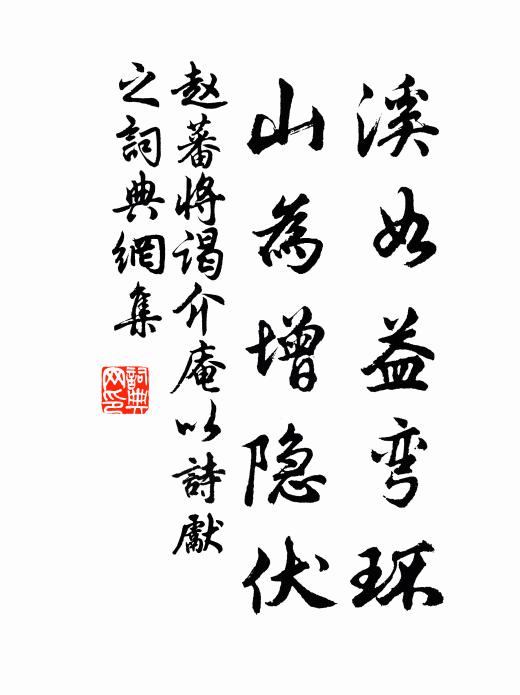 溪如益弯环
山為增隐伏
赵蕃將谒介庵以詩獻
之詞典網集
詞典
网印